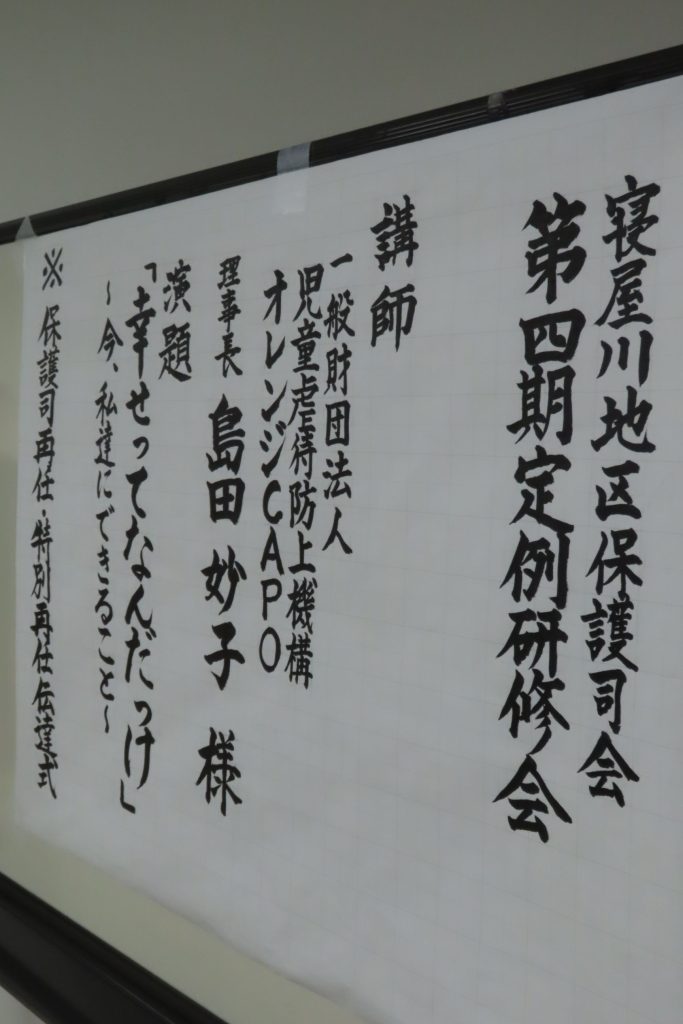 寝屋川地区保護司会
第四期定例研修会
講師
一般財団法人
児童虐待防止機構
オレンジCAPO
理事長 島田妙子 様
演題
「幸せってなんだっけ」
~今、私達にできること~
※保護司再任・特別再任伝達式